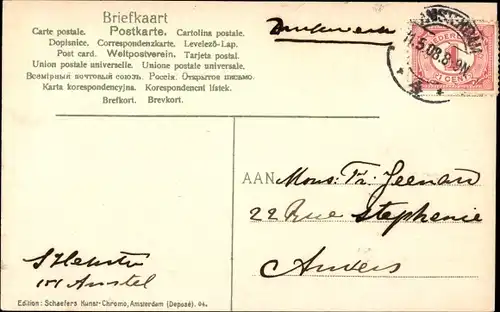 Briefkaart
Carte postale. Postkarte. Cartolina postale.
Dopisnice. Correspondenzkarte. Levelező-Lap.
Post card. Weltpostverein. Tarjeta postal.
Union postale universelle. Unione postale universale.
Всемірный почтовый союзъ. Россія. Открытое письмо.
Karta korespondencyjna. Korespondenční lístek.
Brefkort. Brevkort.
Drukwerk
AMSTERDAM
11.5.08.8-9N
4
NEDERLAND
1
CENT
AAN Mons: Fr: Jeenan
22 Rue Stephenie
Anvers
Amstel
Edition: Schaefers Kunst-Chromo, Amsterdam (Deposé). 94.